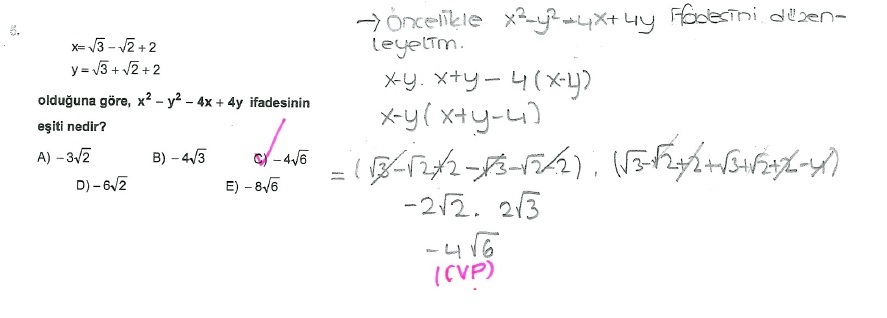 x= √3 − √2 + 2
y = √3 + √2 + 2
olduğuna göre, x² − y² − 4x + 4y ifadesinin
eşiti nedir?
A) −3√2 B) −4√3 C) −4√6
D) −6√2 E) −8√6
→ Öncelikle x²−y²−4x+4y ifadesini düzen-
leyelim.
x−y. x+y − 4(x−y)
x−y(x+y−4)
= (√3−√2+2−√3−√2−2) . (√3−√2+2+√3+√2+2−4)
−2√2 . 2√3
−4√6
(CVP)